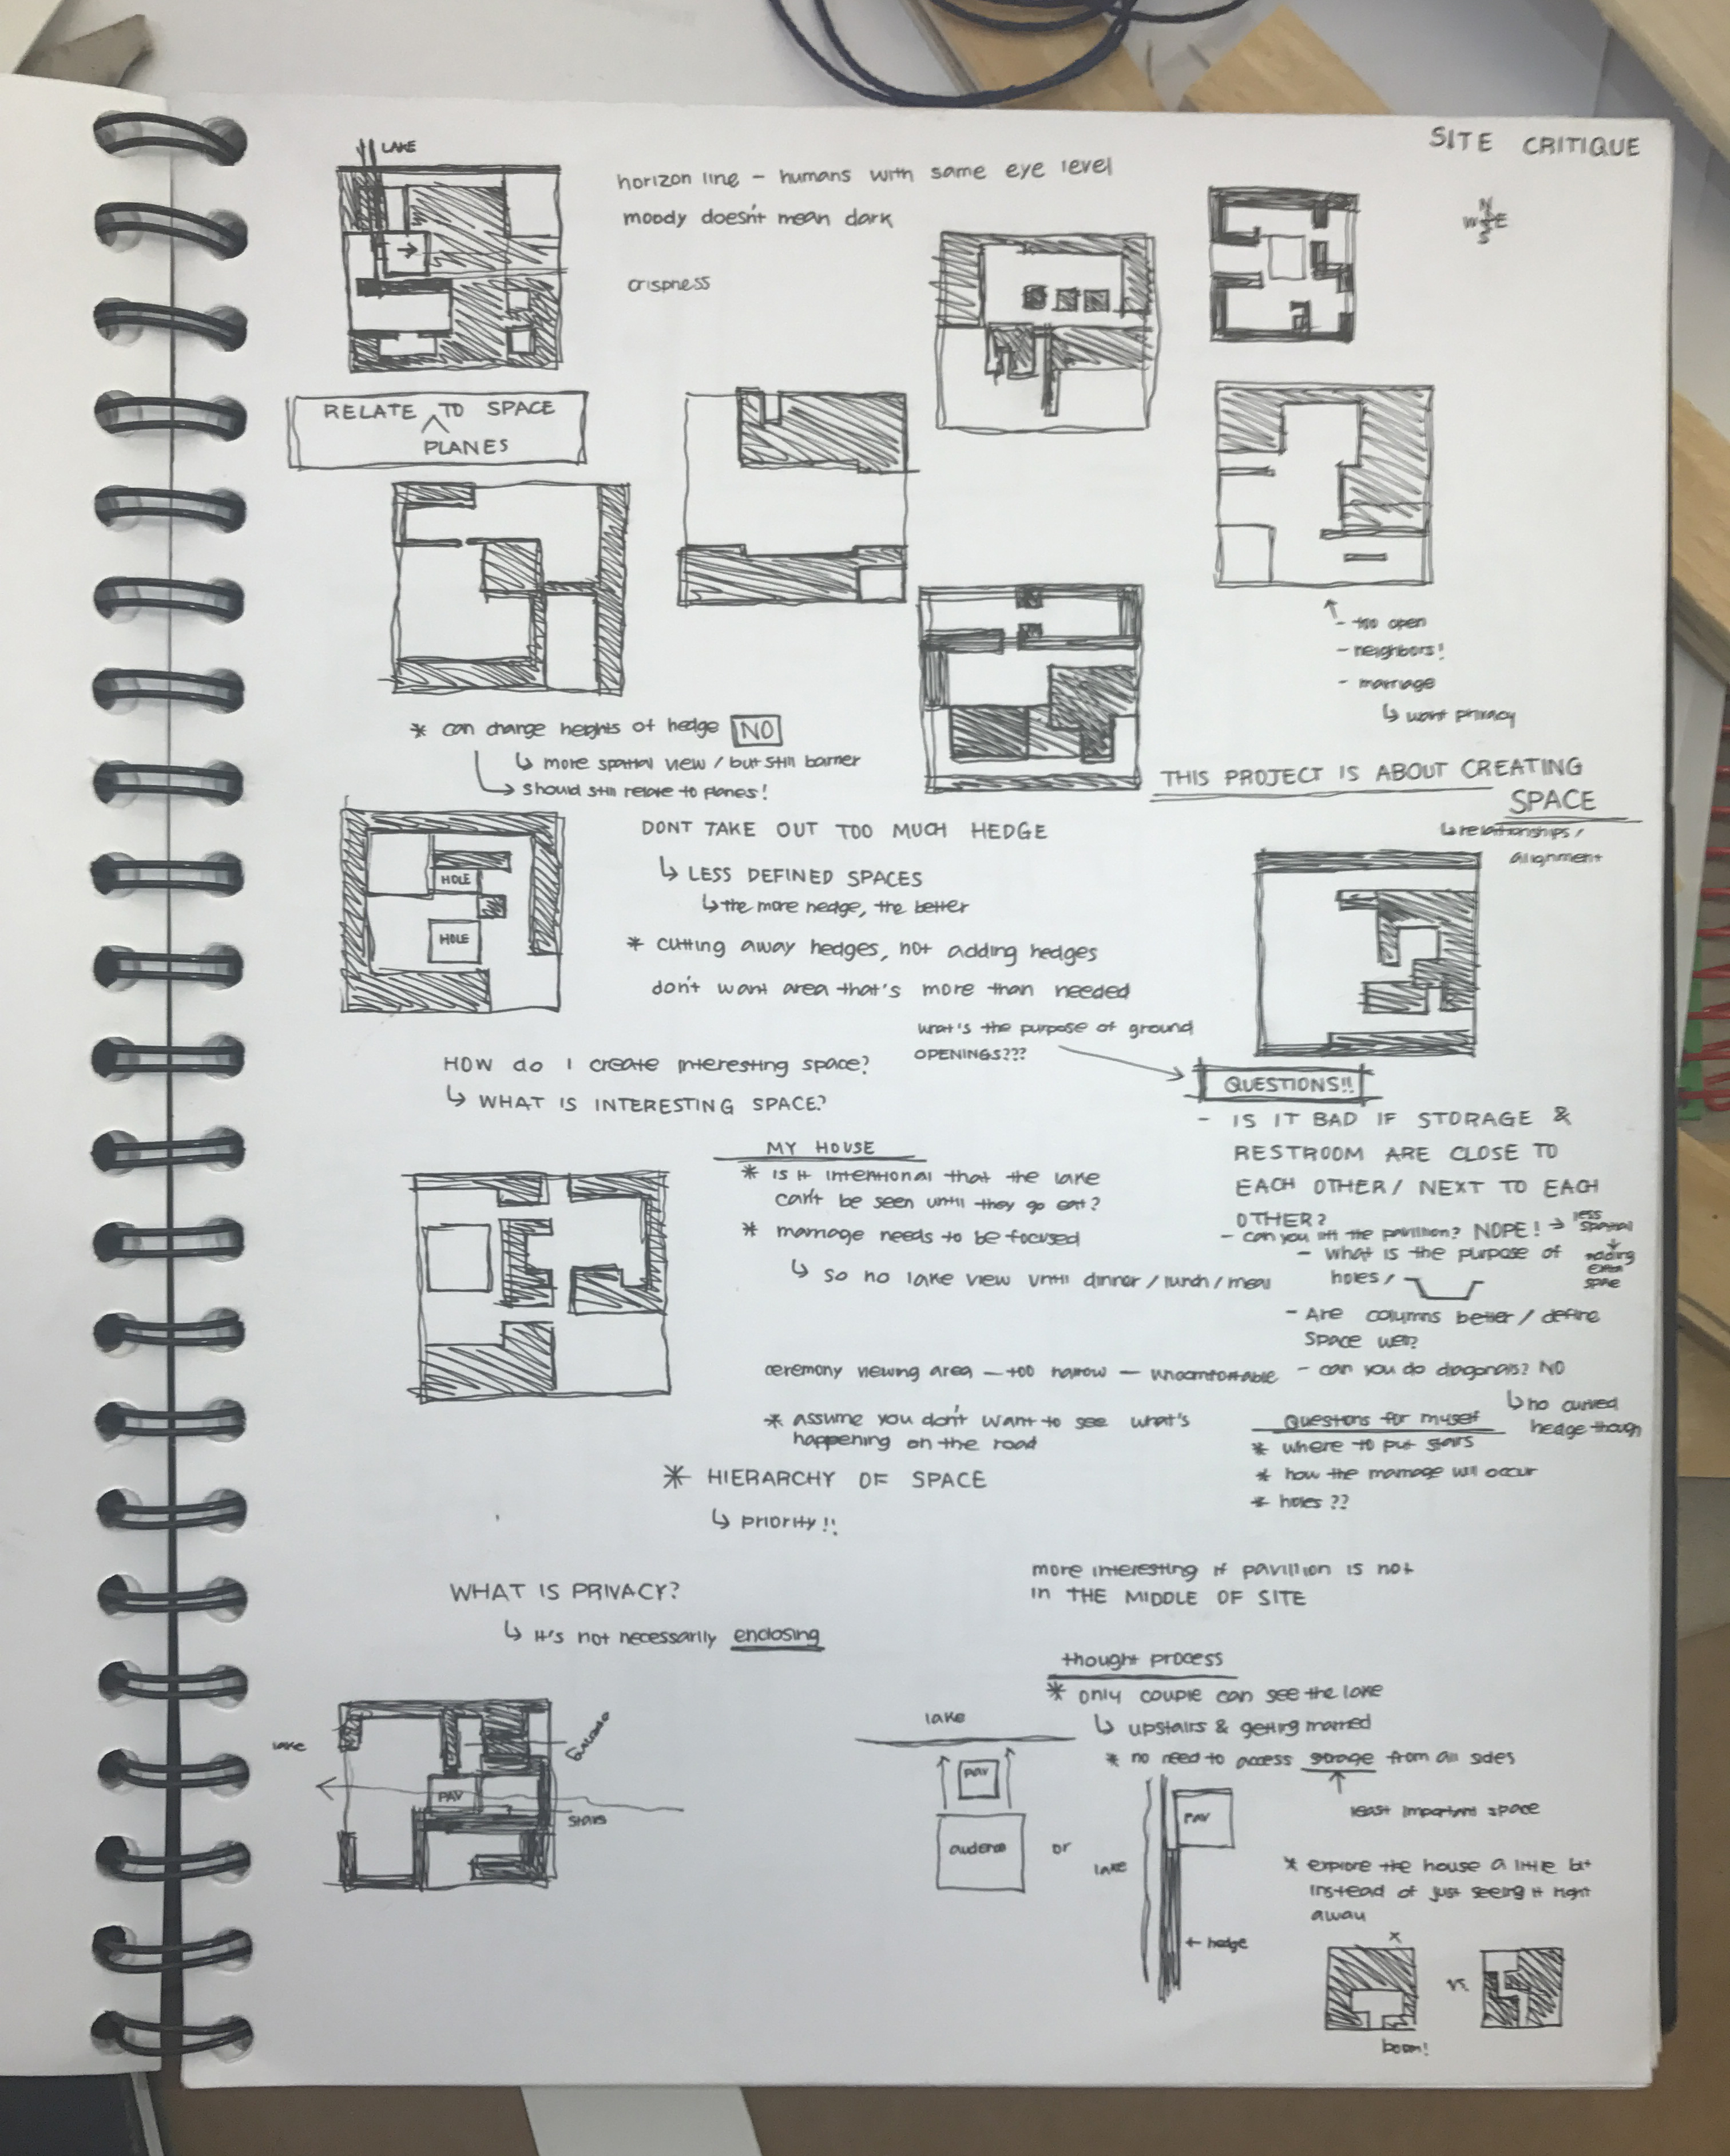 SITE CRITIQUE
LAKE
horizon line – humans with same eye level
moody doesn't mean dark
crispness
N
W E
S
RELATE TO SPACE
PLANES
- too open
- neighbors!
- marriage
↳ want privacy
* can change heights of hedge NO
↳ more spatial view / but still barrier
↳ should still relate to planes!
THIS PROJECT IS ABOUT CREATING
SPACE
↳ relationships /
alignment
DONT TAKE OUT TOO MUCH HEDGE
↳ LESS DEFINED SPACES
↳ the more hedge, the better
HOLE
HOLE
* cutting away hedges, not adding hedges
don't want area that's more than needed
what's the purpose of ground
OPENINGS???
HOW do I create interesting space?
↳ WHAT IS INTERESTING SPACE?
QUESTIONS!!
- IS IT BAD IF STORAGE &
RESTROOM ARE CLOSE TO
EACH OTHER / NEXT TO EACH
OTHER?
- can you lift the pavillion? NOPE! → less
spatial
↓
adding
extra
space
- what is the purpose of
holes /
- Are columns better / define
space well?
- can you do diagonals? NO
↳ no curved
hedge though
MY HOUSE
* is it intentional that the lake
can't be seen until they go eat?
* marriage needs to be focused
↳ so no lake view until dinner / lunch / meal
ceremony viewing area – too narrow – uncomfortable
* assume you don't want to see what's
happening on the road
Questions for myself
* where to put stairs
* how the marriage will occur
* holes ??
* HIERARCHY OF SPACE
↳ PRIORITY!!
WHAT IS PRIVACY?
↳ it's not necessarily enclosing
more interesting if pavillion is not
in THE MIDDLE OF SITE
thought process
* only couple can see the lake
↳ upstairs & getting married
* no need to access storage from all sides
↑
least important space
lake
PAV
stairs
lake
pav
audience
or
lake
PAV
← hedge
* explore the house a little bit
instead of just seeing it right
away
x
vs.
boom!